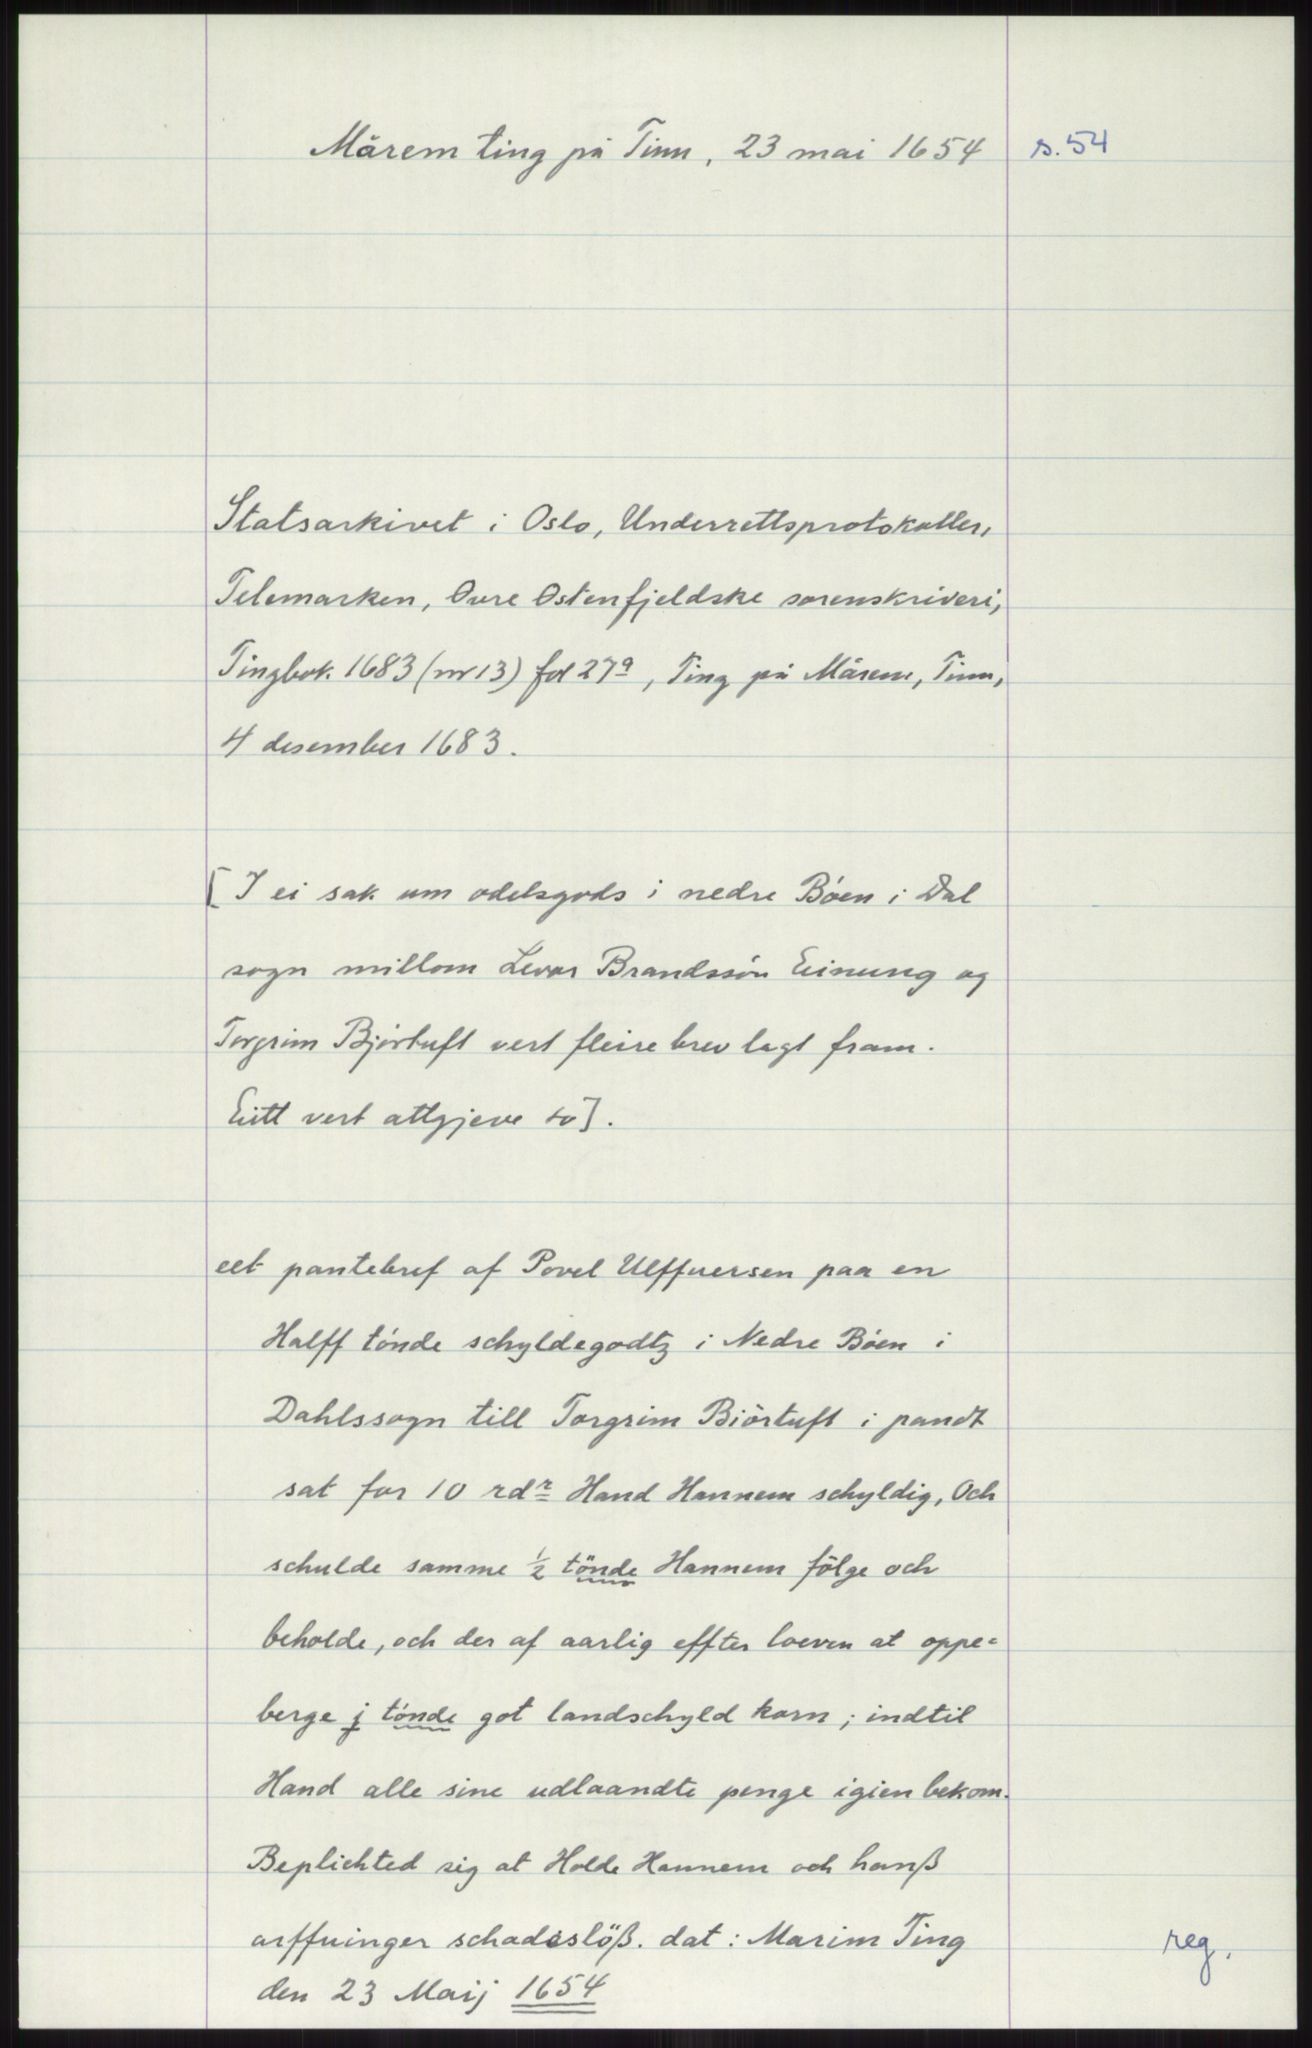 Mårem ting på Tinn, 23 mai 1654 s. 54
Statsarkivet i Oslo, Underrettsprotokoller,
Telemarken, Øvre Østenfjeldske sorenskriveri,
Tingbok 1683 (nr 13) fol 27a, Ting på Mårem, Tinn,
4 desember 1683.
[I ei sak um odelsgods i nedre Böen i Dal
sogn millom Levor Brandssön Einung og
Torgrim Björtuft vert fleire brev lagt fram.
Eitt vert attgjeve so].
eet pantebref af Povel Ulffuersen paa en
Halff tönde schyldegodtz i Nedre Böen i
Dahlssogn till Torgrim Biörtuft i pandt
sat for 10 rdr Hand Hannem schyldig, Och
schulde samme ½ tönde Hannem fölge och
beholde, och der af aarlig effter loeven at oppe=
berge j tönde got landschyld korn; indtil
Hand alle sine udlaandte penge igien bekom.
Beplichted sig at Holde Hannem och hanß
arffuinger schadeslöß. dat: Marim Ting
den 23 Maij 1654
reg.